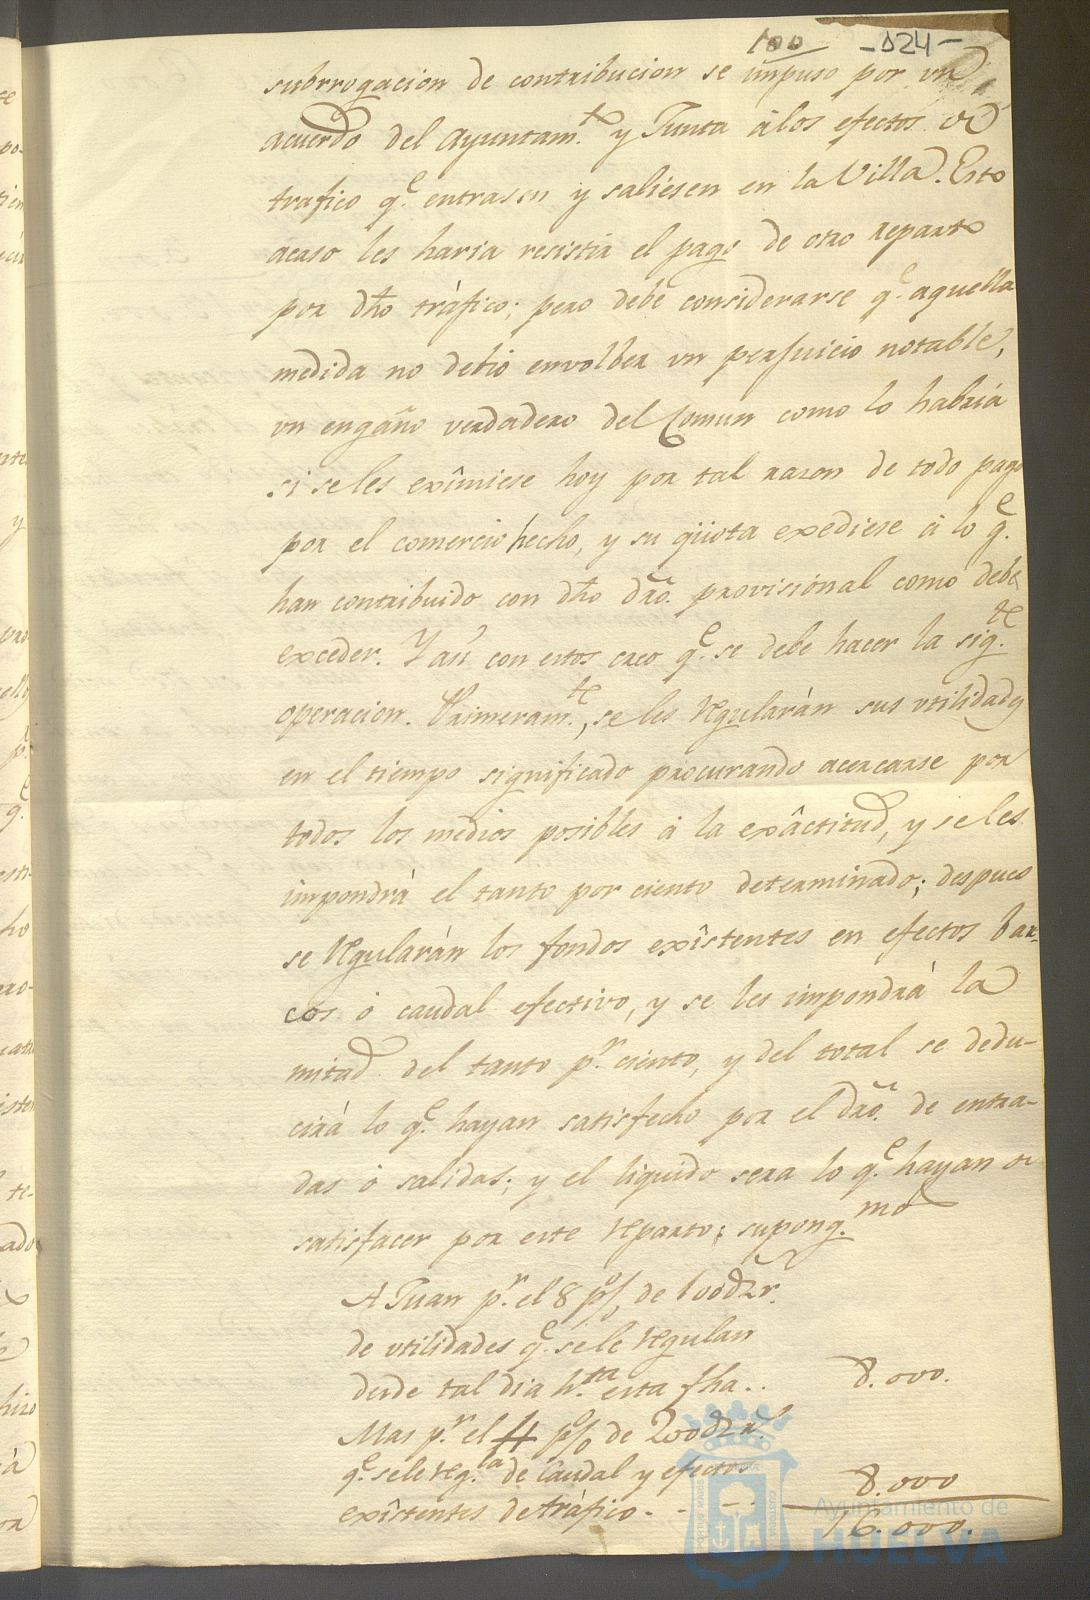 100 -D24-
subrrogacion de contribucion se impuso por un
acuerdo del Ayuntam.te y Junta álos efectos de
trafico q.e entrasen y saliesen en la Villa. Esto
acaso les haria resistir el pago de otro reparto
por dho tráfico; pero debe considerarse q.e aquella
medida no debio envolber un perjuicio notable,
un engaño verdadero del Comun como lo habria
si seles exîmiese hoy por tal razon de todo pago
por el comercio hecho, y su qüota exediese á lo q.e
han contribuido con dho dro. provisional como debe
exceder. Y aũ con estos creo q.e se debe hacer la sig.te
operacion. Primeram.te, se les regularán sus utilidades
en el tiempo significado procurando acercarse por
todos los medios posibles á la exâctitud, y seles
impondrá el tanto por ciento determinado; despues
se regularán los fondos exîstentes en efectos bar-
cos ó caudal efectivo, y se les impondrá la
mitad del tanto p.r ciento, y del total se dedu-
cirá lo q.e hayan satisfecho por el dro. de entra-
das ó salidas; y el liquido sera lo q.e hayan de
satisfacer por este reparto; supong.mos
A Juan p.r el 8 p% de 100d r.
de utilidades q.e se le regulan
desde tal dia h.ta esta fha.. 8.000.
Mas p.r el 4 p% de 200d r.
q.e sele reg.la de Caudal y efectos
exîstentes de tráfico. - - . 8.000
16.000.
Ayuntamiento de
HUELVA